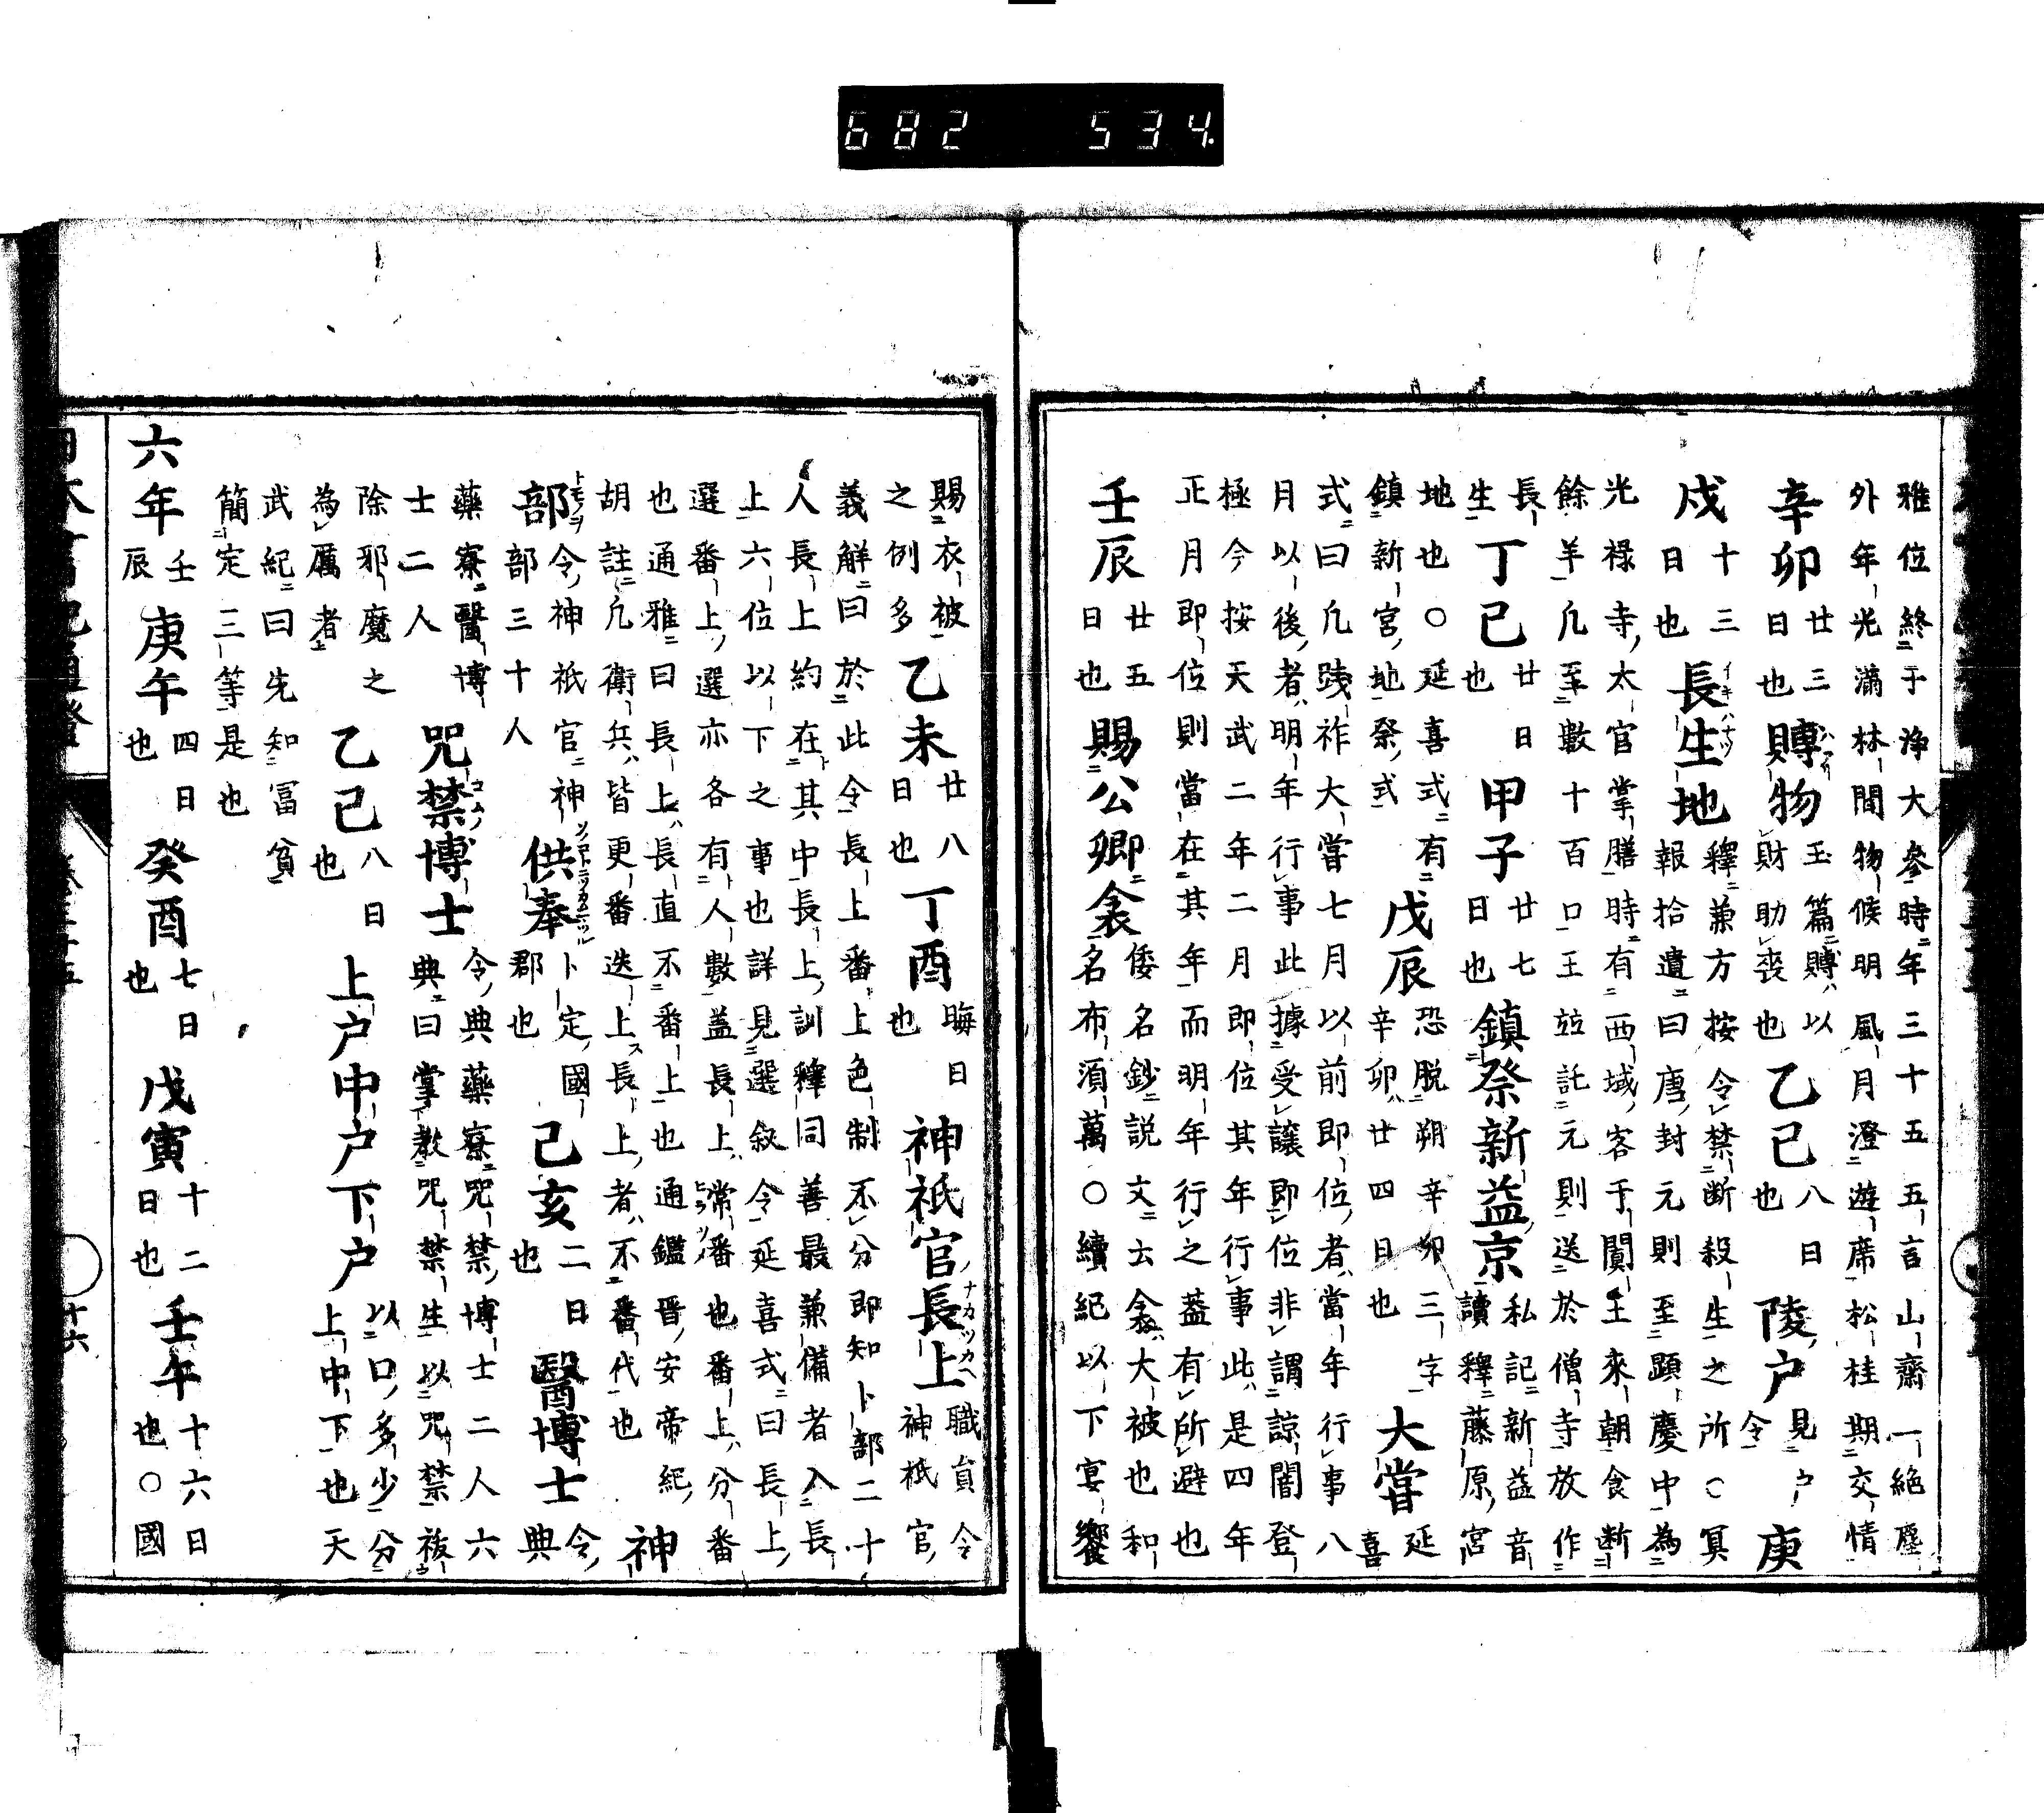 682 534
雅位終于浄大參時年三十五五言山齋一絶塵
外年光滿林間物候明風月澄遊席松桂期交情
辛卯 廿三日也 賻物 玉篇賻以財助喪也 乙巳 八日也 陵戸 見戸令 庚
戍 十三日也 長生地 釋兼方按令禁断殺生之所○冥報拾遺曰唐封元則至顕慶中為
光禄寺太官掌膳時有西域客于闐王來朝食断
餘羊凢至數十百口王竝託元則送於僧寺放作
長生 丁巳 廿日也 甲子 廿七日也 鎮祭新益京 私記新益音讀釋藤原宮
地也○延喜式有鎮新宮地祭式 戊辰 恐脱朔辛卯三字辛卯廿四日也 大嘗 延喜
式曰凢踐祚大嘗七月以前即位者當年行事八
月以後者明年行事此據受讓即位非謂諒闇登
極今按天武二年二月即位其年行事此是四年
正月即位則當在其年而明年行之葢有所避也
壬辰 廿五日也 賜公卿衾 倭名鈔説文云衾大被也和名布須萬○續紀以下宴饗
賜衣被之例多 乙未 廿八日也 丁酉 晦日也 神祇官長上 職員令神祇官
義解曰於此令長上番上色制不分即知卜部二十
人長上約在其中長上訓釋同善最兼備者入長
上六位以下之事也詳見選叙令延喜式曰長上
選番上選亦各有人數葢長上常番也番上分番
也通雅曰長上長直不番上也通鑑晋安帝紀
胡註凢衛兵皆更番迭上長上者不番代也 神
部 令神祇官神部三十人 供奉 卜定國郡也 己亥 二日也 醫博士 令典
藥寮醫博士二人 咒禁博士 令典藥寮咒禁博士二人六典曰掌教咒禁生以咒禁祓
除邪魔之為厲者 乙巳 八日也 上戸中戸下戸 以口多少分上中下也天
武紀曰先知冨貧簡定三等是也
六年 壬辰 庚午 四日也 癸酉 七日也 戊寅 十二日也 壬午 十六日也○國
日本書紀通證 卷三十五 十六